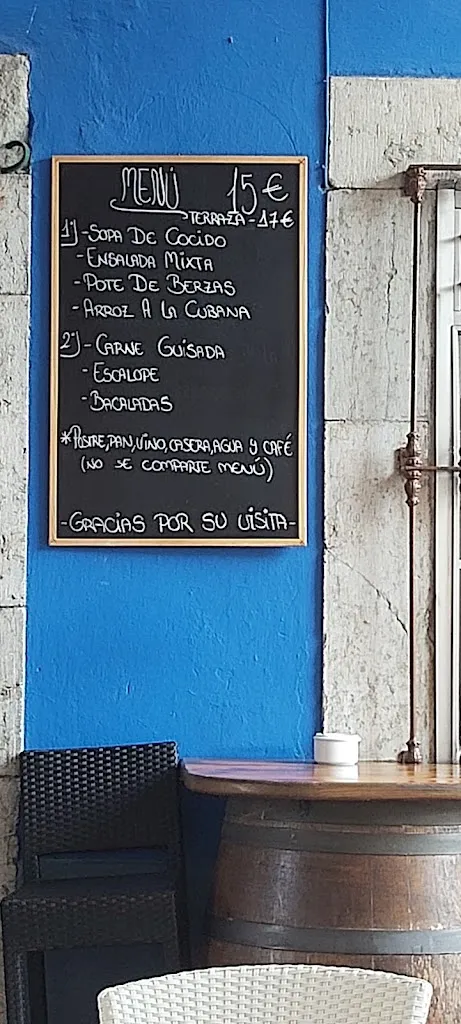 MENÚ 15€
TERRAZA - 17€
1º) - SOPA DE COCIDO
- ENSALADA MIXTA
- POTE DE BERZAS
- ARROZ A LA CUBANA
2º) - CARNE GUISADA
- ESCALOPE
- BACALADAS
* POSTRE, PAN, VINO, CASERA, AGUA Y CAFÉ
(NO SE COMPARTE MENÚ)
- GRACIAS POR SU VISITA -